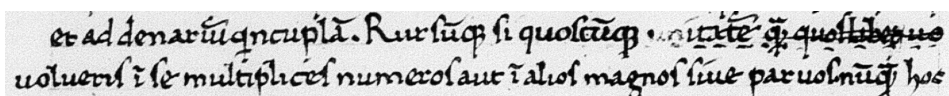 et ad denariū qͥncuplā. Rursūqꝫ si quoscūqꝫ unitatē quoslibet uo
uolueris ī se multiplices numeros aut ī alios magnos siue paruos. nūqͣ hoc